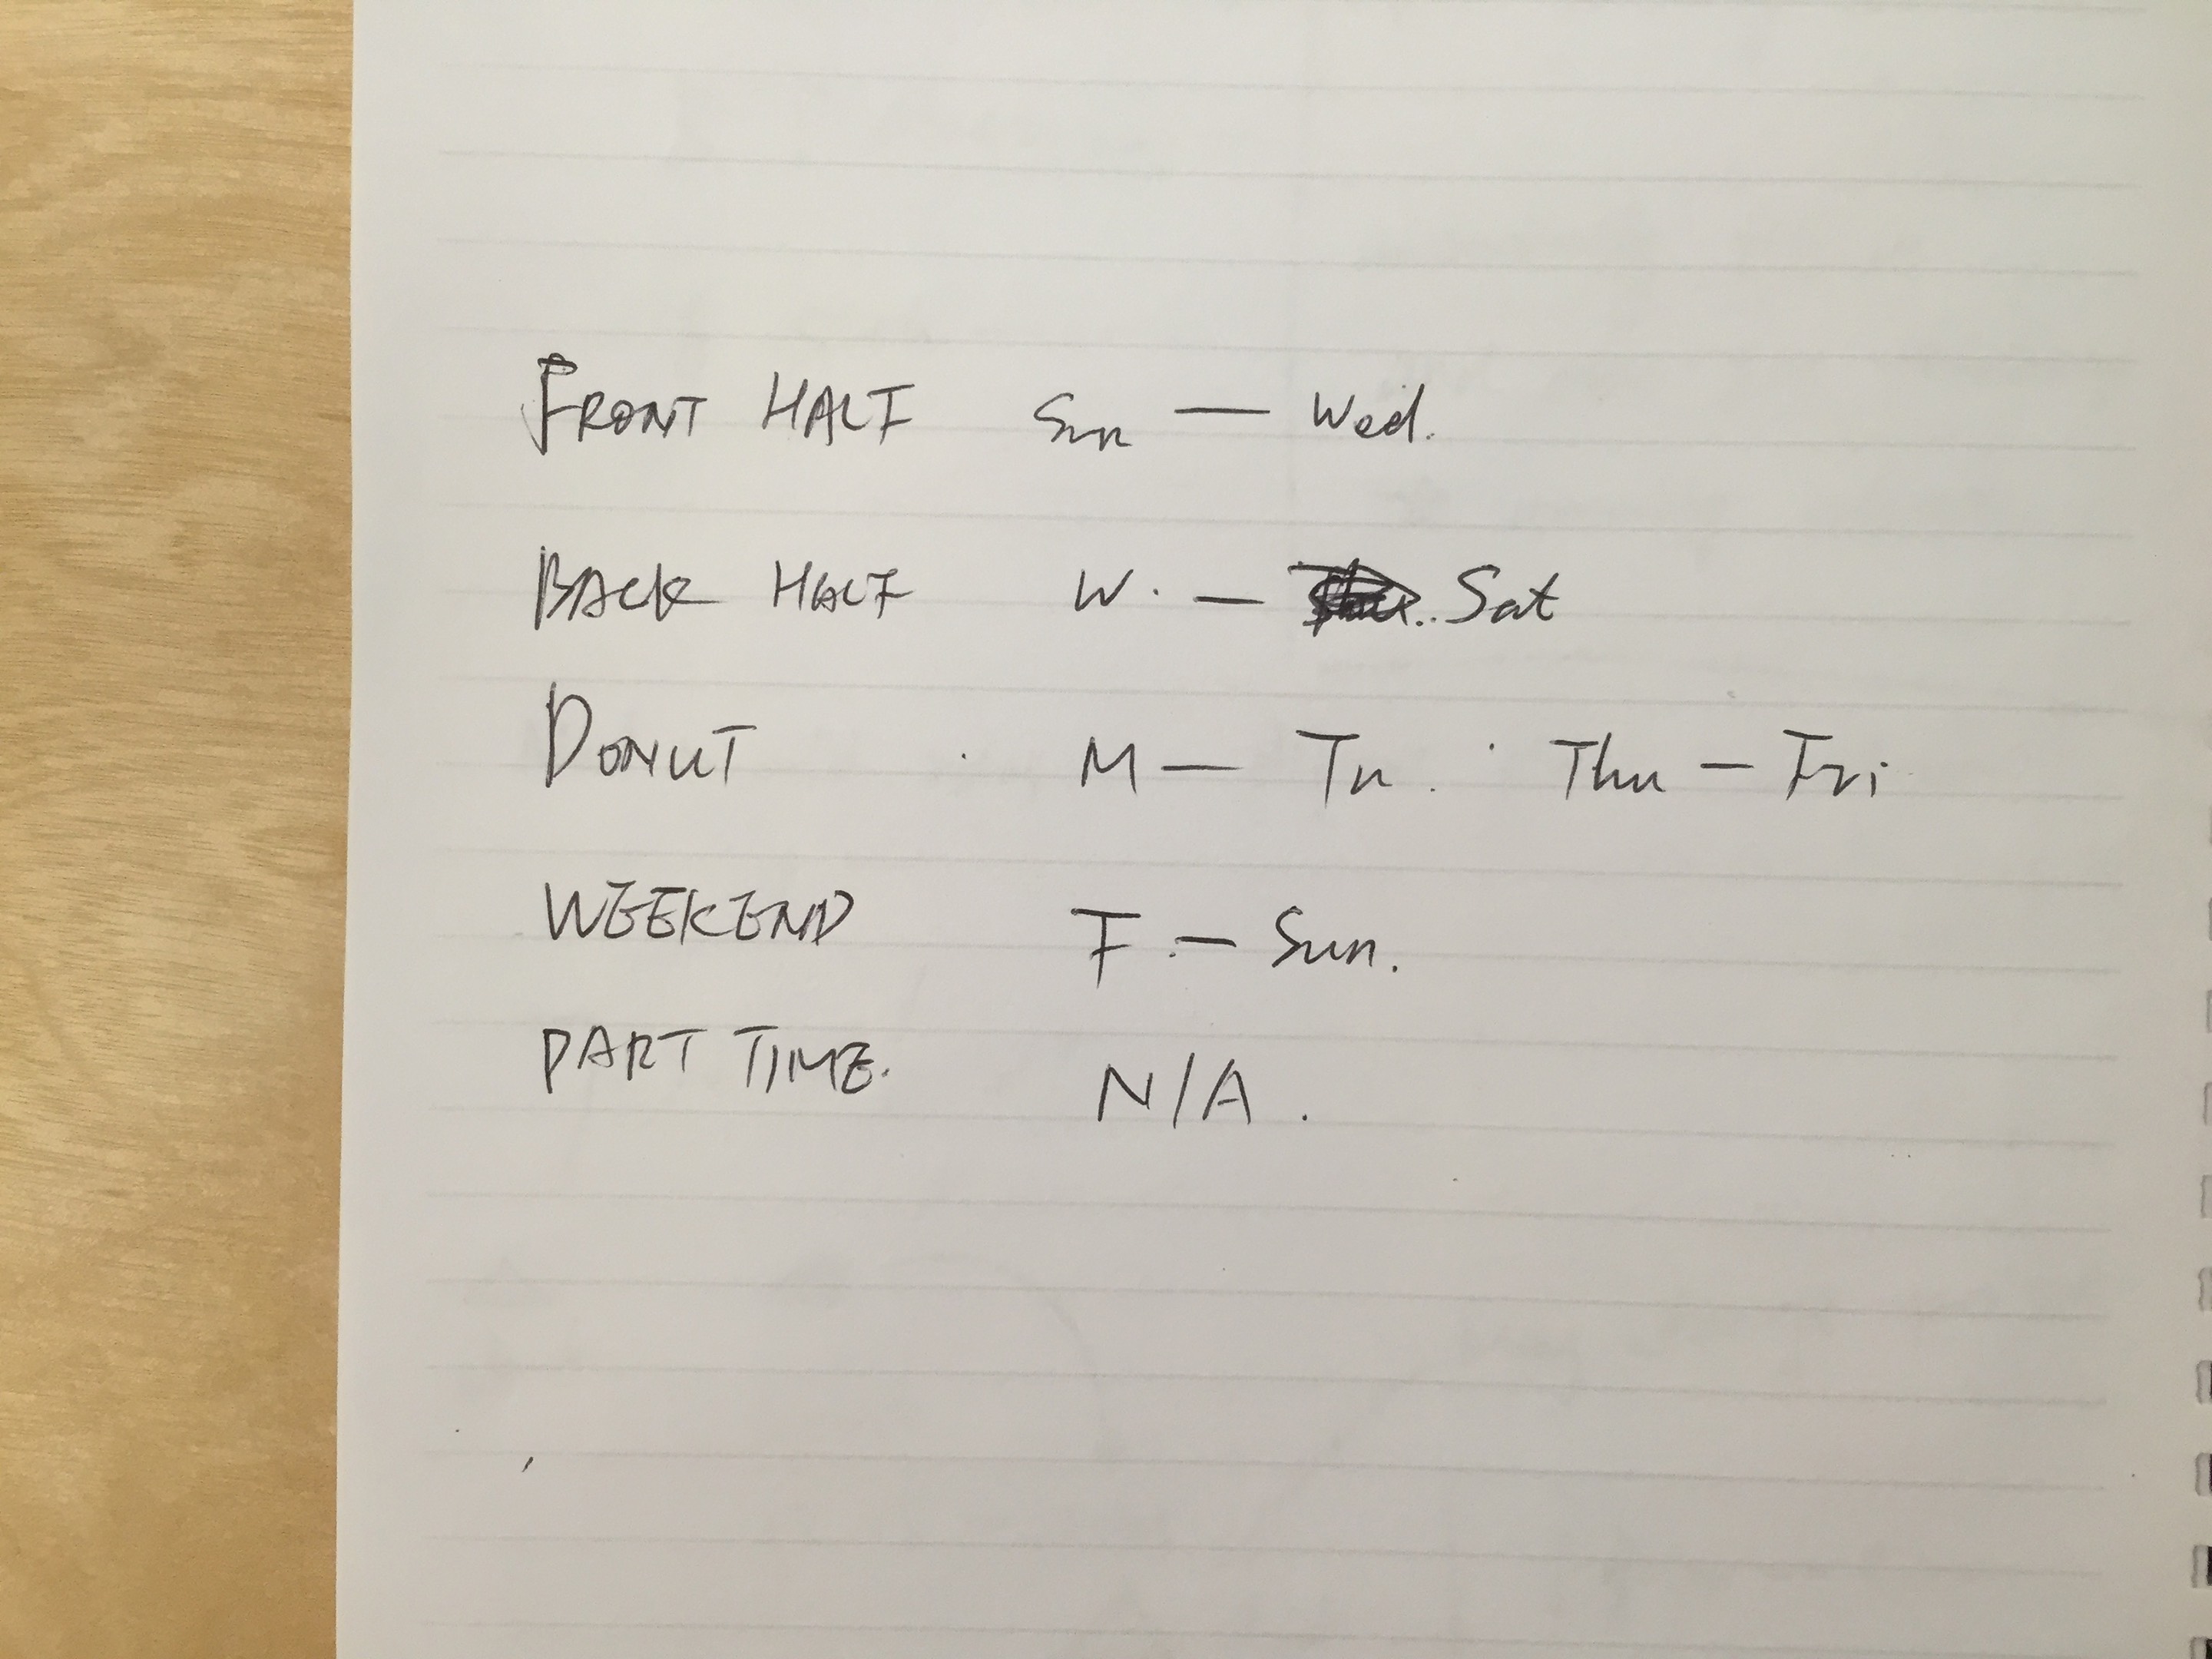 FRONT HALF Sun — Wed.
BACK HALF W. — Sat
DONUT M — Tu. Thu — Fri
WEEKEND F. — Sun.
PART TIME. N/A.